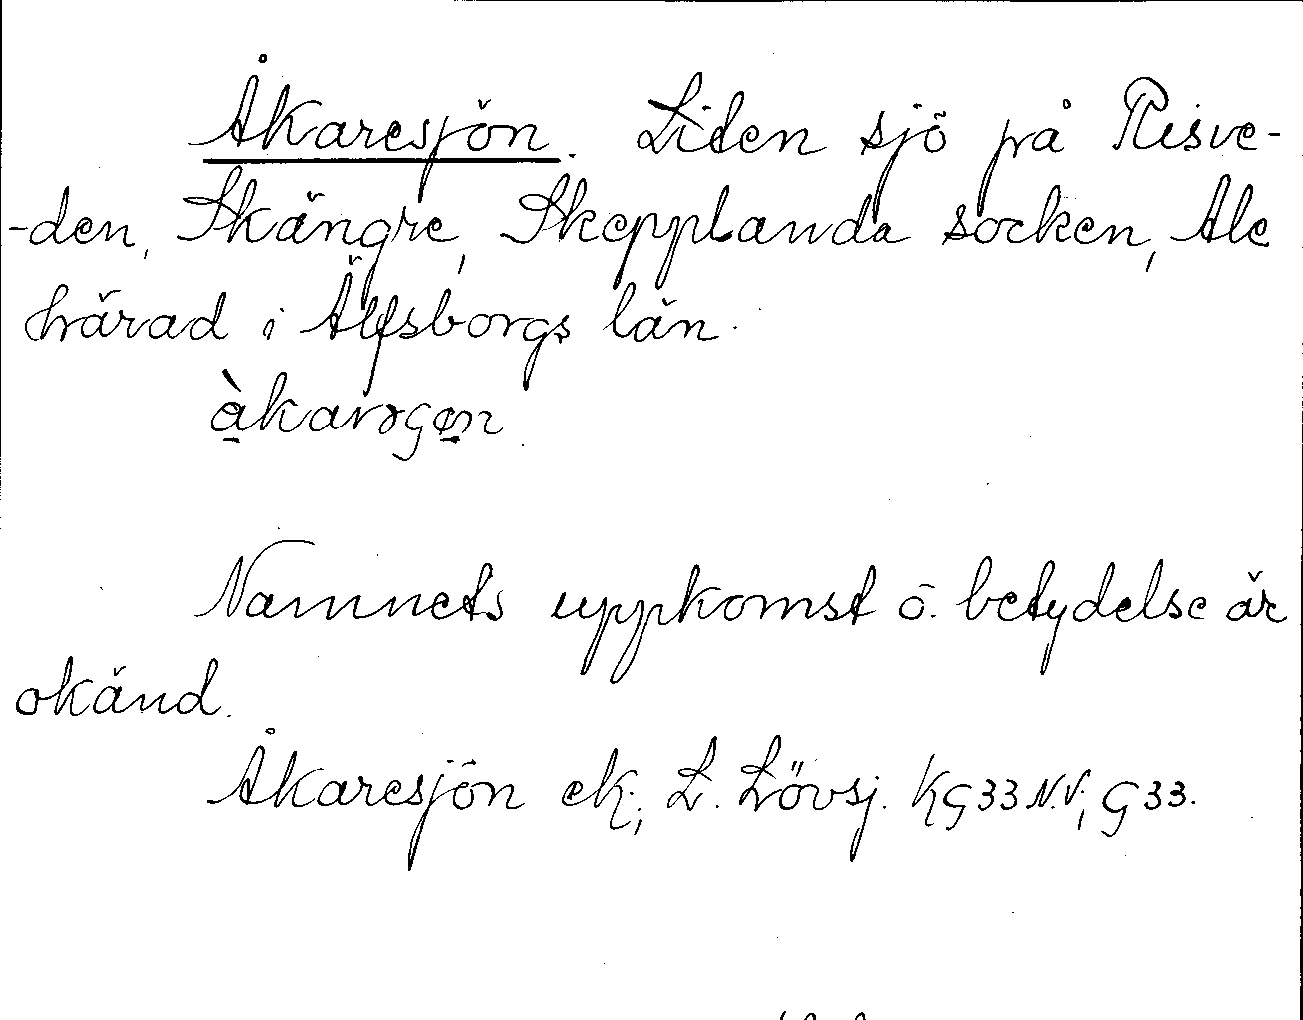 Åkaresjön. Liten sjö på Risve-
-den, Skängre, Skepplanda socken, Ale
härad i Älfsborgs län.
Namnets uppkomst o. betydelse är
okänd.
Åkaresjön ek; L. Lövsj. KG33N.V; G33.